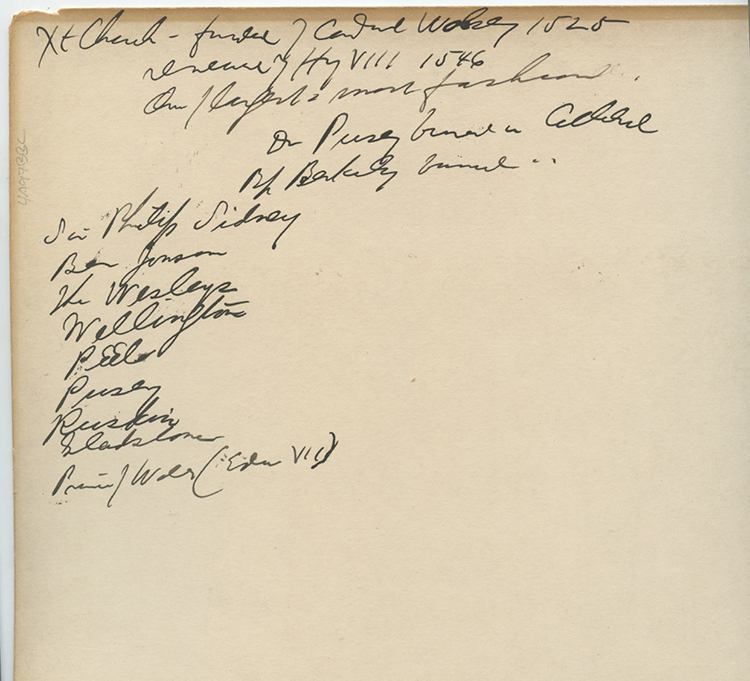 Xt Church - founded by Cardinal Wolsey 1525
renewed by Hy VIII 1546
One of largest & most fashion
Dr Pusey buried in Cathedral
Bp Berkeley buried "
Sir Philip Sidney
Ben Jonson
the Wesleys
Wellington
Peel
Pusey
Ruskin
Gladstone
Prince of Wales (Edw VII)